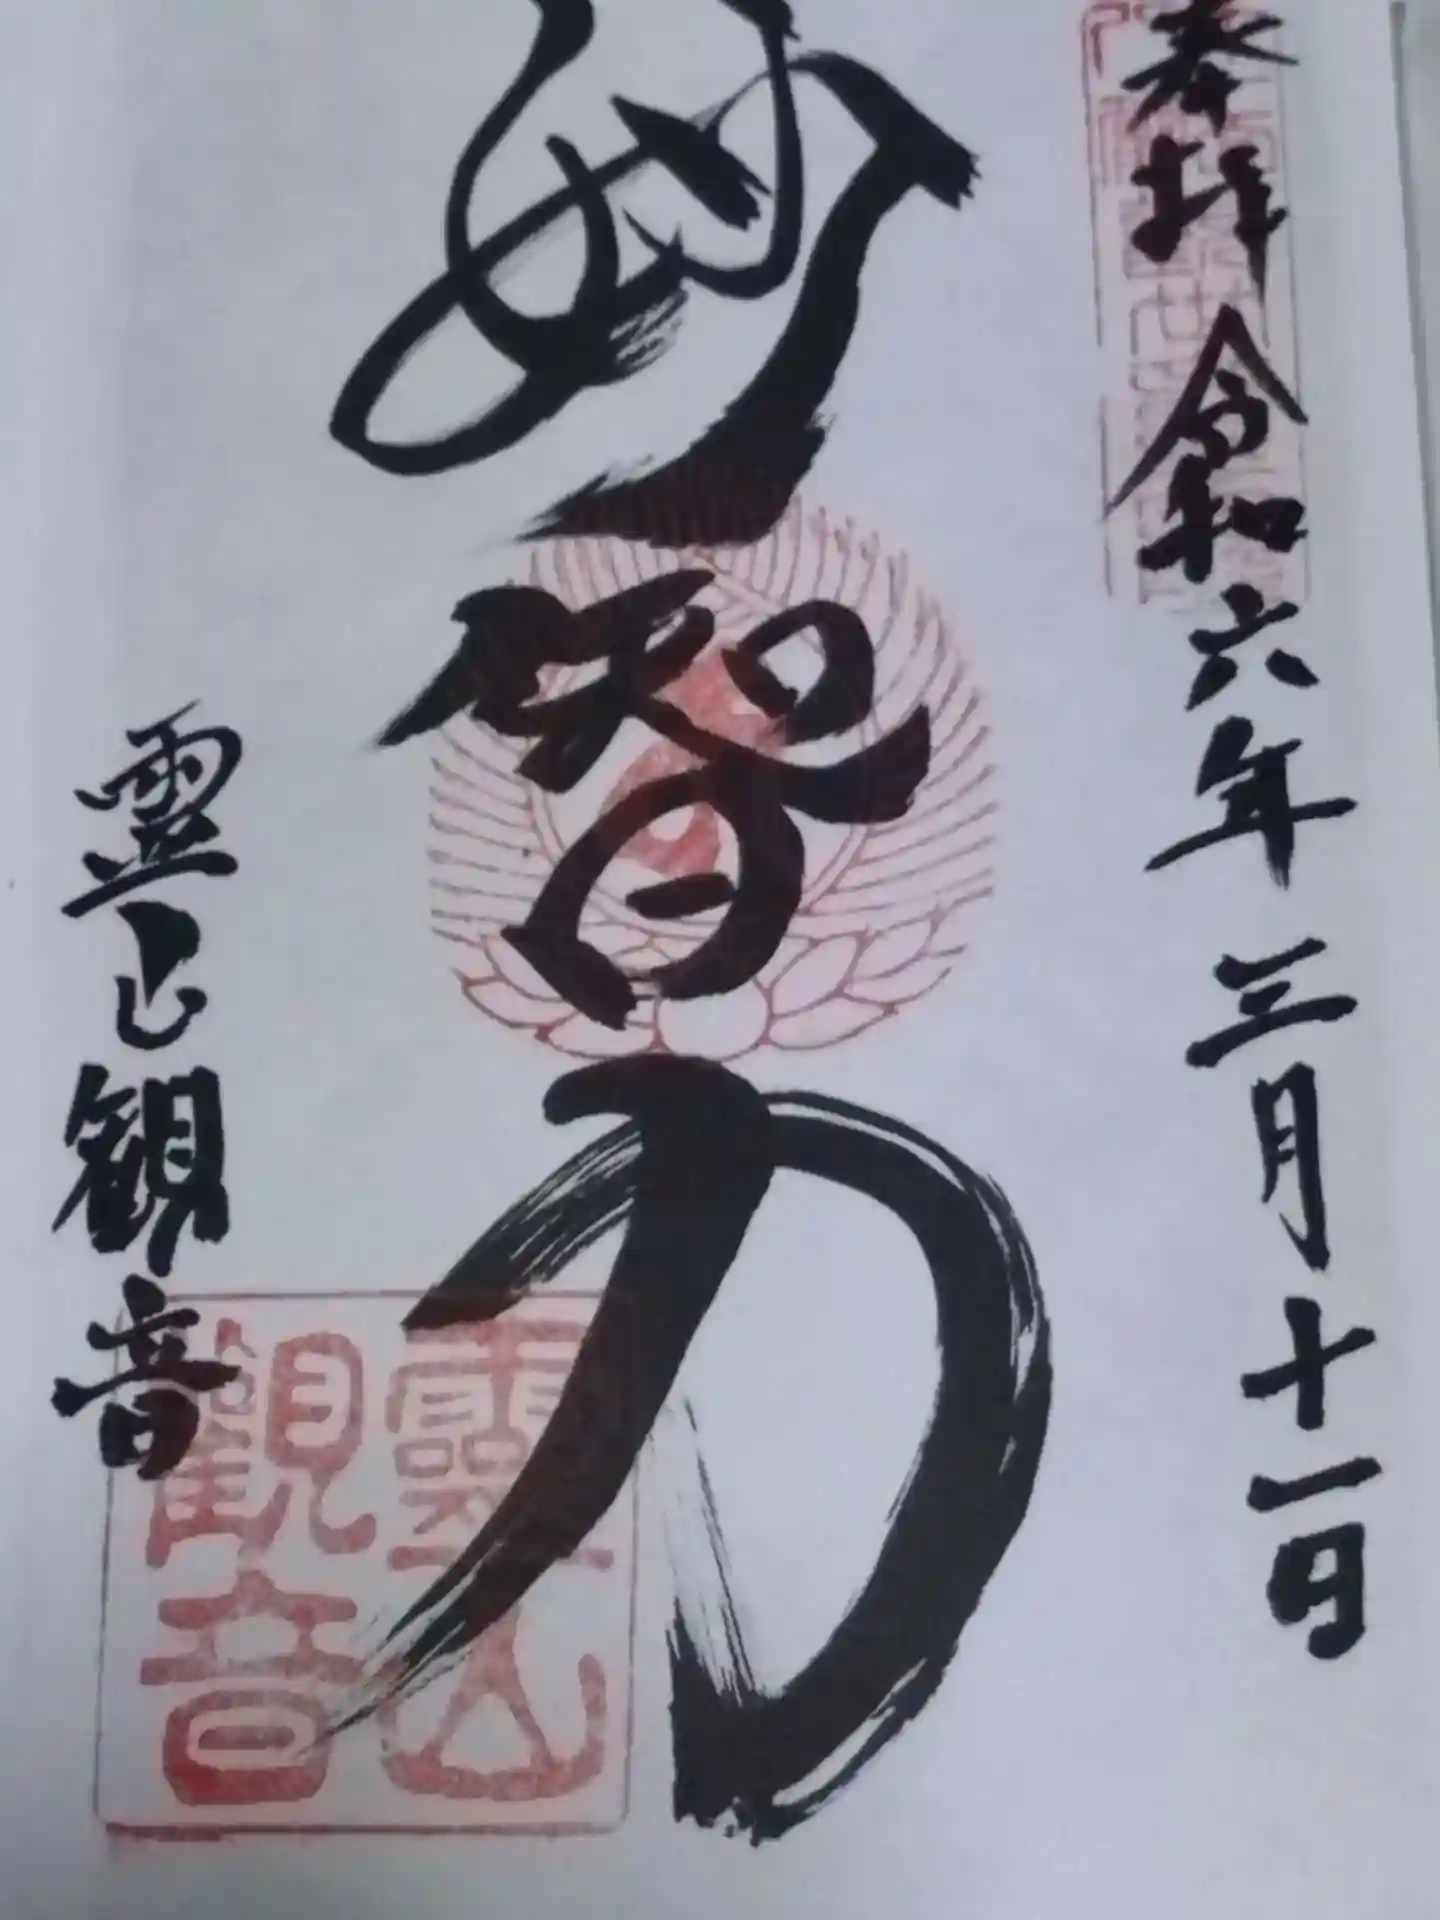 奉拝 令和六年三月十一日
妙智力
霊山観音
靈山
觀音